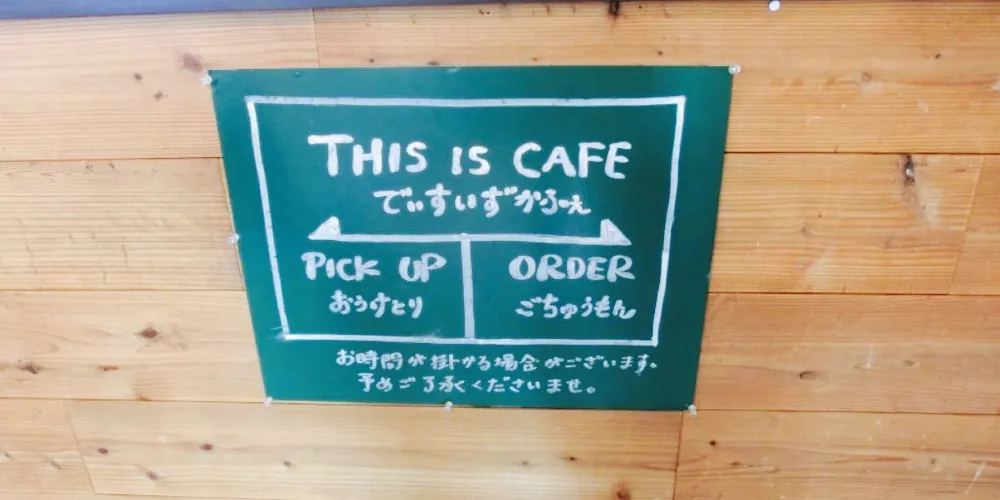 THIS IS CAFE
でぃすいずかふぇ
PICK UP
おうけとり
ORDER
ごちゅうもん
お時間が掛かる場合がございます。
予めご了承くださいませ。